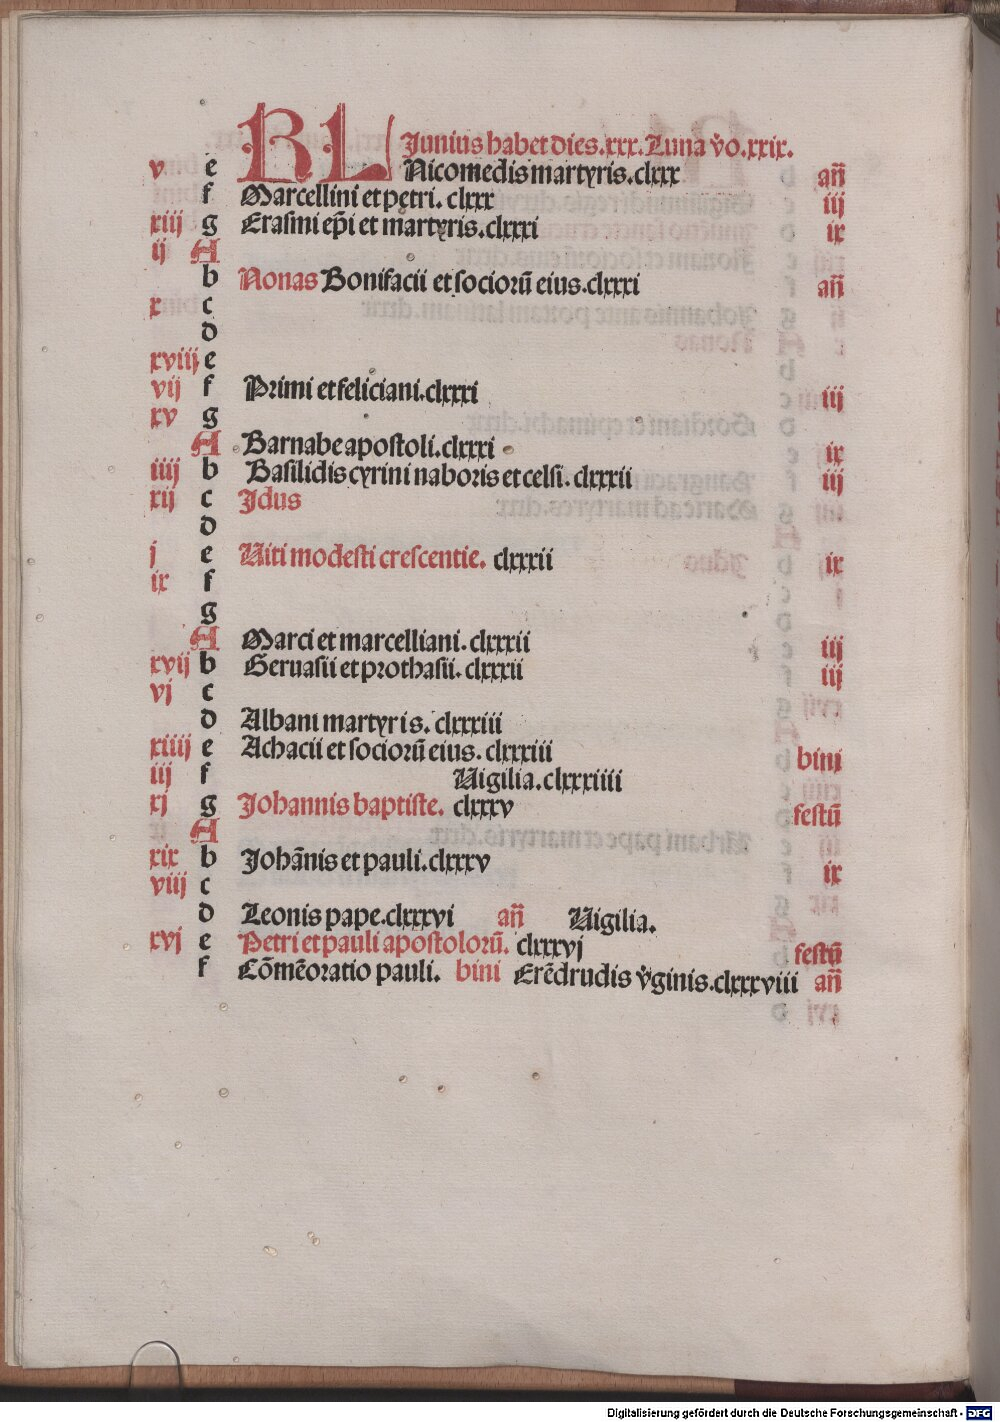 KL Junius habet dies.xxx.Luna v̾o.xxix.
v e Nicomedis martyris.clxxx an̄
f Marcellini et petri.clxxx iij
xiij g Erasmi ep̄i et martyris.clxxxi ix
ij A
b Nonas Bonifacii et sociorū eius.clxxxi an̄
x c
d
xviij e
vij f Primi et feliciani.clxxxi iij
xv g
A Barnabe apostoli.clxxxi ix
iiij b Basilidis cyrini naboris et celsi.clxxxii iij
xij c Jdus
d
j e Uiti modesti crescentie. clxxxii ix
ix f
g
A Marci et marcelliani. clxxxii iij
xvij b Geruasii et prothasii. clxxxii iij
vj c
d Albani martyris. clxxxiii
xiiij e Achacii et sociorū eius. clxxxiii bini
iij f Uigilia.clxxxiiii
xj g Johannis baptiste. clxxxv festū
A
xix b Johān̄is et pauli.clxxxv ix
viij c
d Leonis pape.clxxxvi an̄ Uigilia.
xvj e Petri et pauli apostolorū. clxxxvj festū
f Cōmēoratio pauli. bini Erēdrudis v̾ginis.clxxxviii an̄
Digitalisierung gefördert durch die Deutsche Forschungsgemeinschaft - DFG